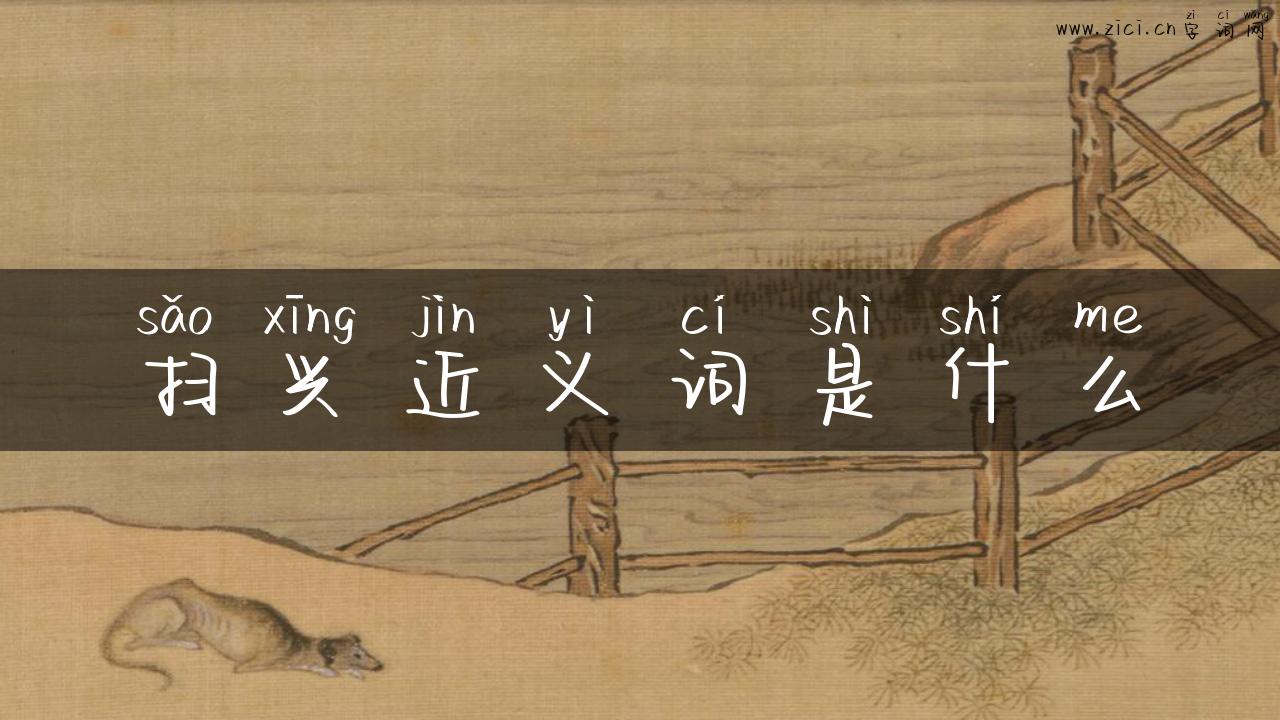 zì cí wǎng
www.zici.cn 字词网
sǎo xīng jìn yì cí shì shí me
扫兴近义词是什么